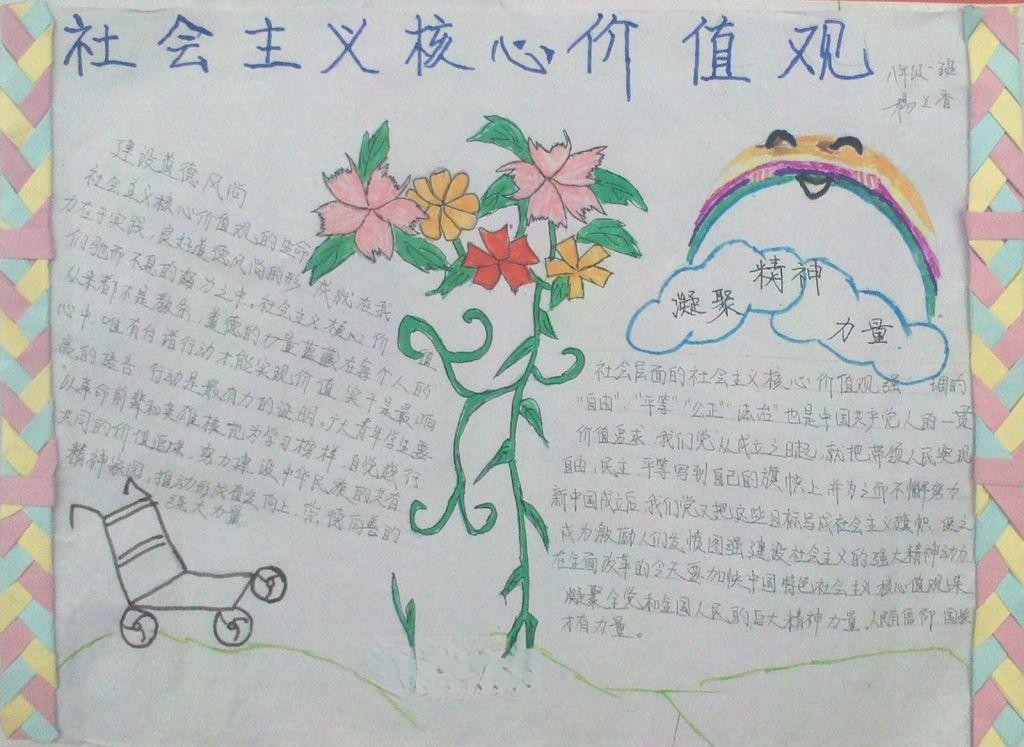 社会主义核心价值观
八年级一班
建设道德风尚
社会主义核心价值观的生命
力在于实践，良好道德风尚的形成就在我
们驰而不息的努力之中。社会主义核心价值
从来都不是教条，道德的力量蕴藏在每个人的
心中，唯有付诸行动才能实现价值，实干是最响
亮的语言，行动是最有力的证明，广大青年学生要
以革命前辈和英雄模范为学习榜样，自觉践行
共同的价值追求，努力建设中华民族的共有
精神家园，推动形成着向上，崇德向善的
强大力量
凝聚精神
力量
社会层面的社会主义核心价值观强调的
“自由”、“平等”“公正”“法治”也是中国共产党人的一贯
价值追求，我们党从成立之日起，就把带领人民实现
自由，民主，平等写到自己的旗帜上并为之而不懈努力
新中国成立后，我们党又把这些目标写成社会主义旗帜，使之
成为激励人们发愤图强建设社会主义的强大精神动力
在全面改革的今天要加快中国特色社会主义核心值观来
凝聚全党和全国人民的巨大精神力量，人民有信仰，国家
才有力量。